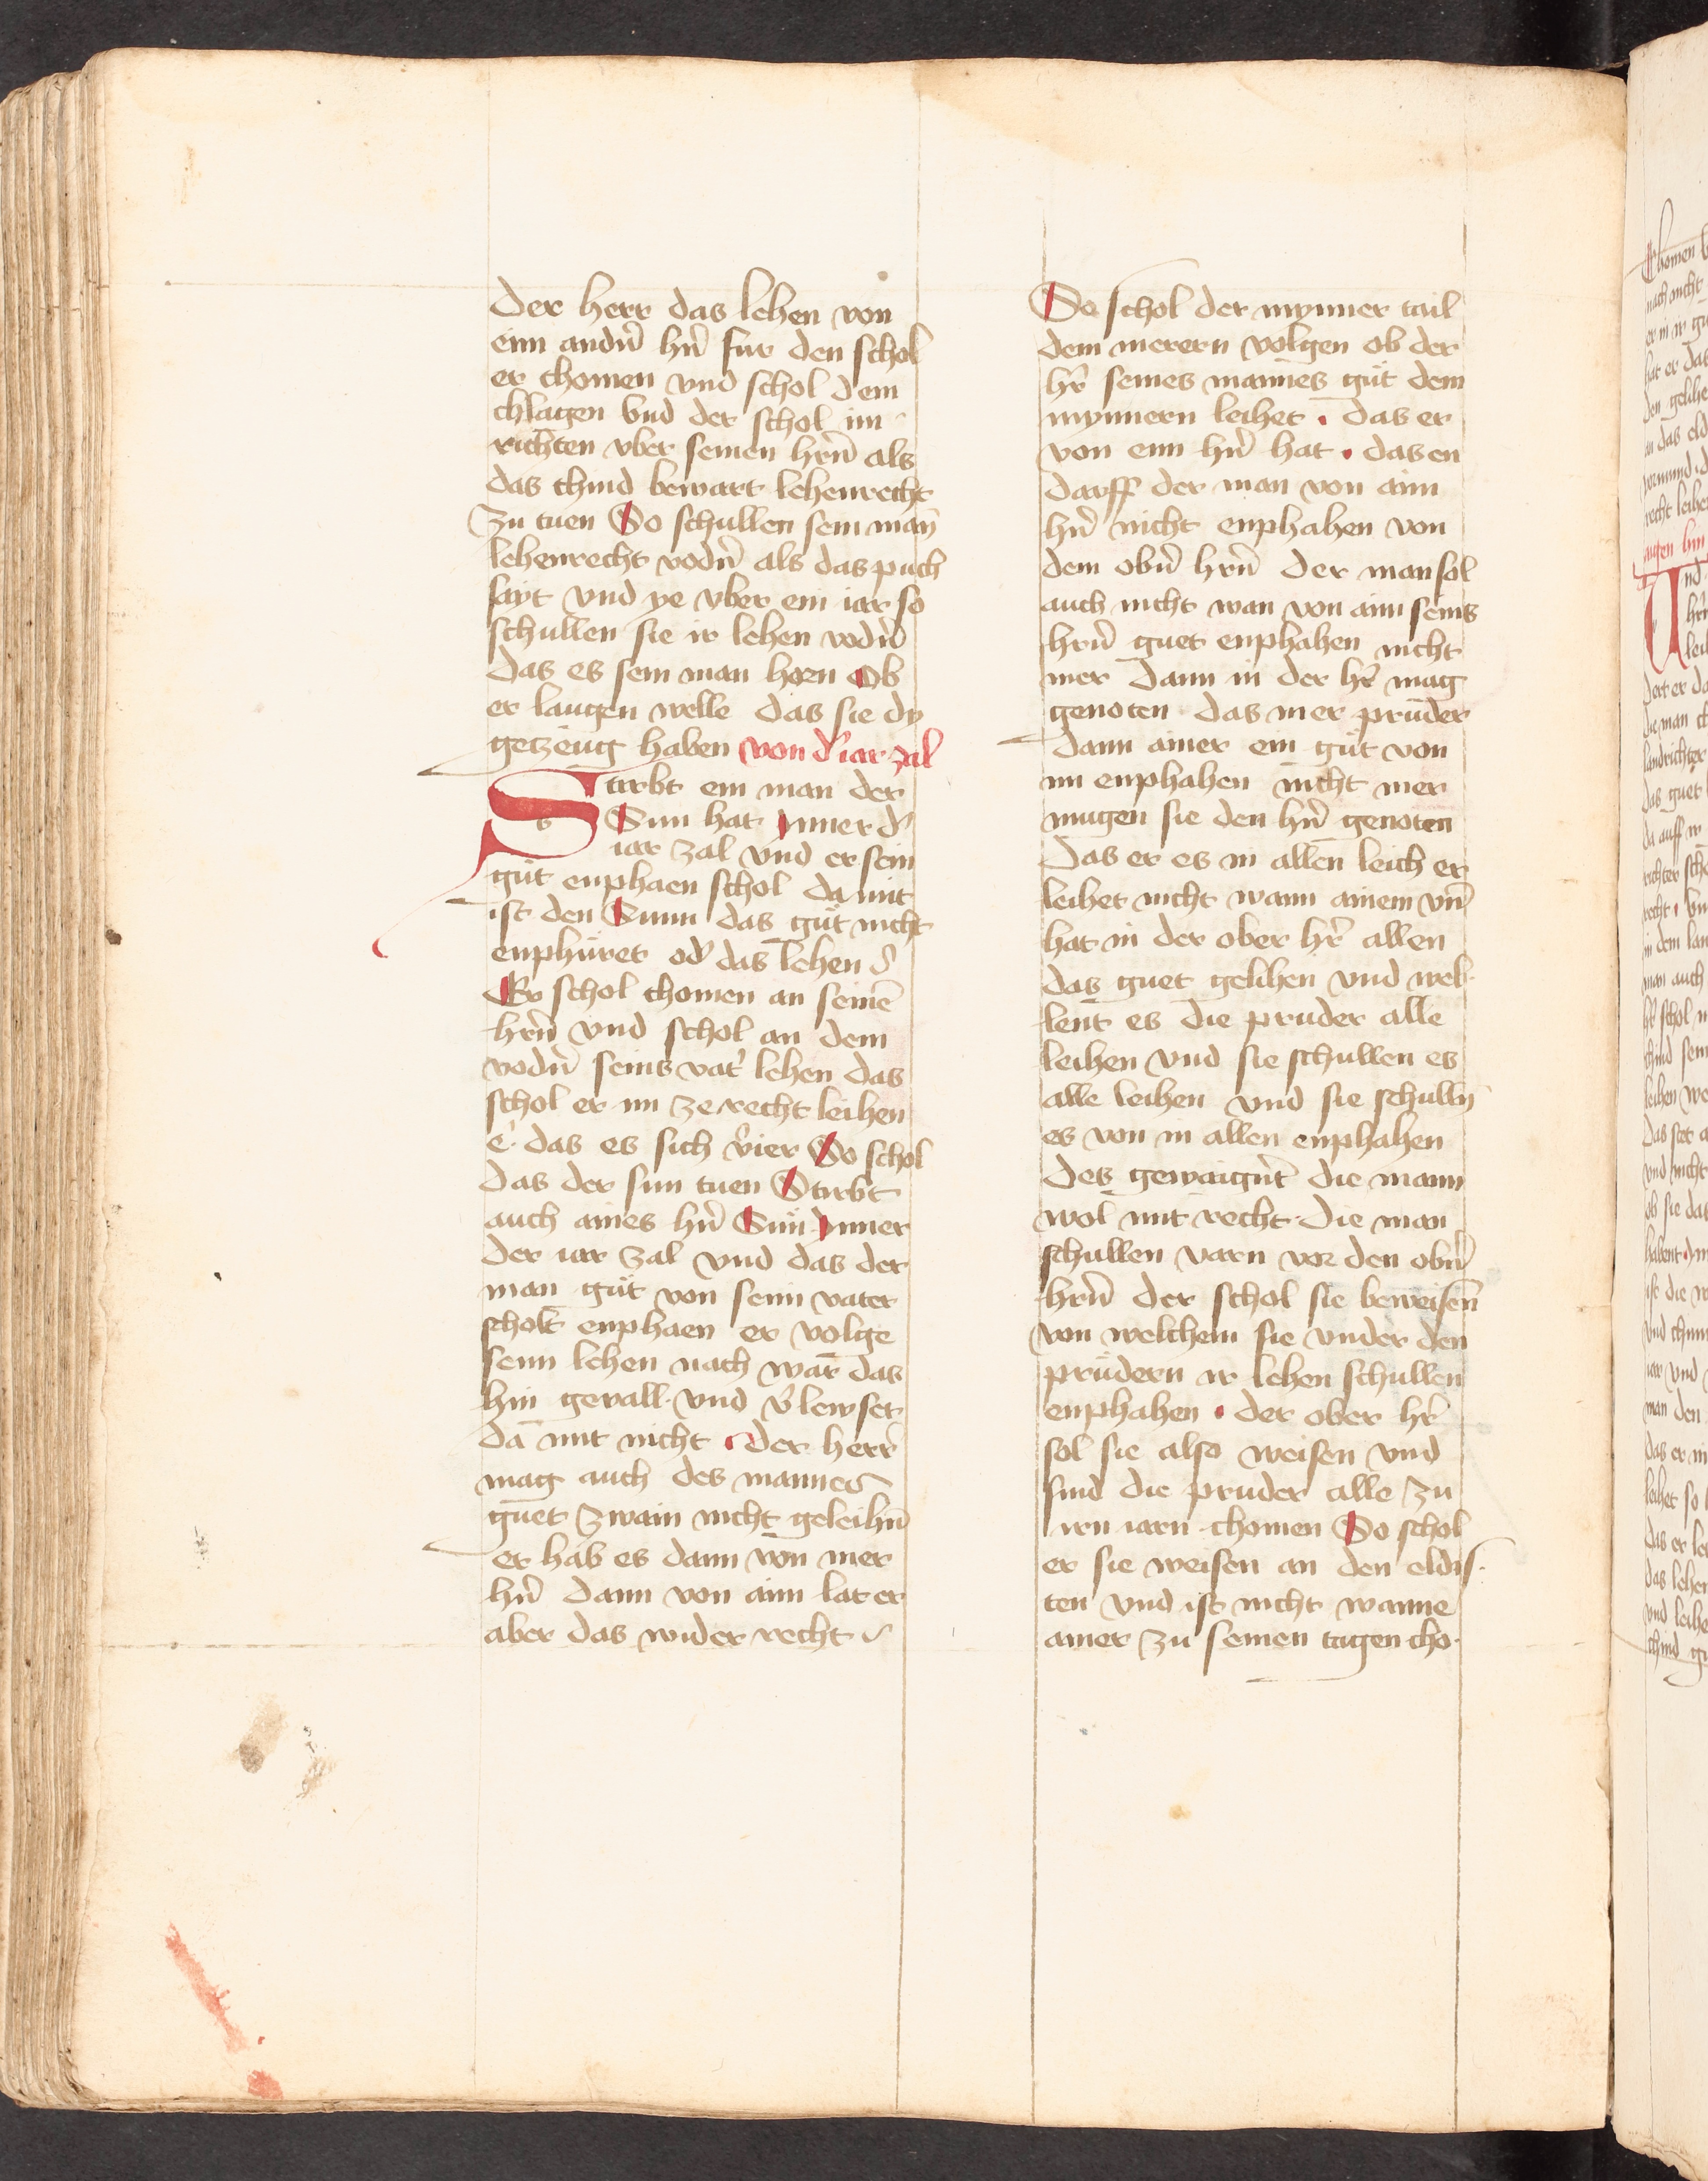 Der herr das lehen von
ein andn̄ hn̄ fur den schol
er chomen vnd schol dem
chlagen vnd der schol im
richten vber seinen hrn̄ als
das chind bewart lehenrecht
zu tuen So schullen sein man̄
lehenrecht vodn̄ als das puch
sayt vnd ye vber ein iar so
schullen sie ir lehen vodn̄
das es sein man horn Ob
er laugen welle das sie dy
getzeug haben von d' iar zal
Stirbt ein man der
Sun hat ynner d'
iar zal vnd er sein
gůt enphaen schol da mit
ist den Sunn das gůt nicht
enphůret od' das lehen
Er schol chomen an seinē
hrn̄ vnd schol an dem
vodn̄ seins vat' lehen das
schol er im ze recht leihen
e· das es sich v'ier So schol
das der sun tuen Stirbt
auch aines hn̄ Sun ynner
der iar zal vnd das der
man gůt von seim vater
scholt enphaen er volge
seim lehen nach war das
hin gevall· vnd v'lewset
da mit nicht · der herr
mag auch des mannes
guet zwain nicht geleihn̄
er hab es dann von mer
hn̄ dann von aim lat er
aber das wider recht
So schol der mynner tail
dem merern volgen ob der
hr' seines mannes gůt dem
mynnern leihet · das er
von eim hn̄ hat · das en
darff der man von aim
hn̄ nicht enphahen von
dem obn̄ hrn̄ Der man sol
auch nicht wan von aim seins
hrn̄ guet enphahen nicht
mer Dann in der hr' mag
genoten das mer průder
dann ainer ein gůt von
im enphahen nicht mer
mugen sie den hn̄ genoten
Das er es in allen leich er
leihet nicht wann ainem vn̄
hat in der ober hr' allen
das guet gelihen vnd wel·
lent es die pruder alle
leihen vnd sie schullen es
alle leihen vnd sie schulln̄
es von in allen enphahen
des gewaign't die mann
wol mit recht · Die man
schullen varn vor den obn̄
hrn̄ der schol sie beweisen̄
von welchem sie vnder den
průdern ir lehen schullen
enphahen · der ober hr'
sol sie also weisen vnd
sind die pruder alle zu
irn iarn chomen So schol
er sie weisen an den eldis·
ten vnd ist nicht wanne
ainer zu seinen tagen cho·